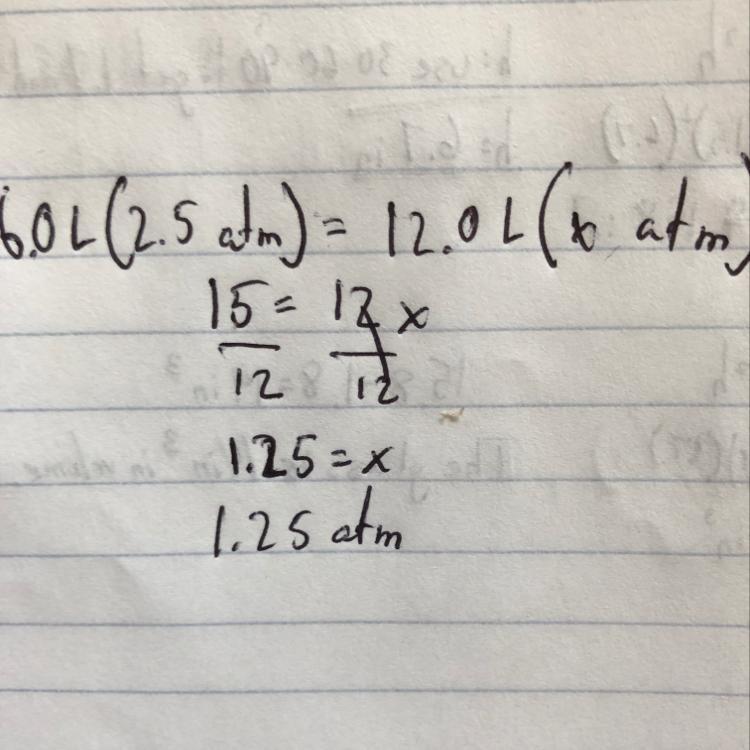 6.0 L (2.5 atm) = 12.0 L (x atm)
15 = 12 x
12 12
1.25 = x
1.25 atm